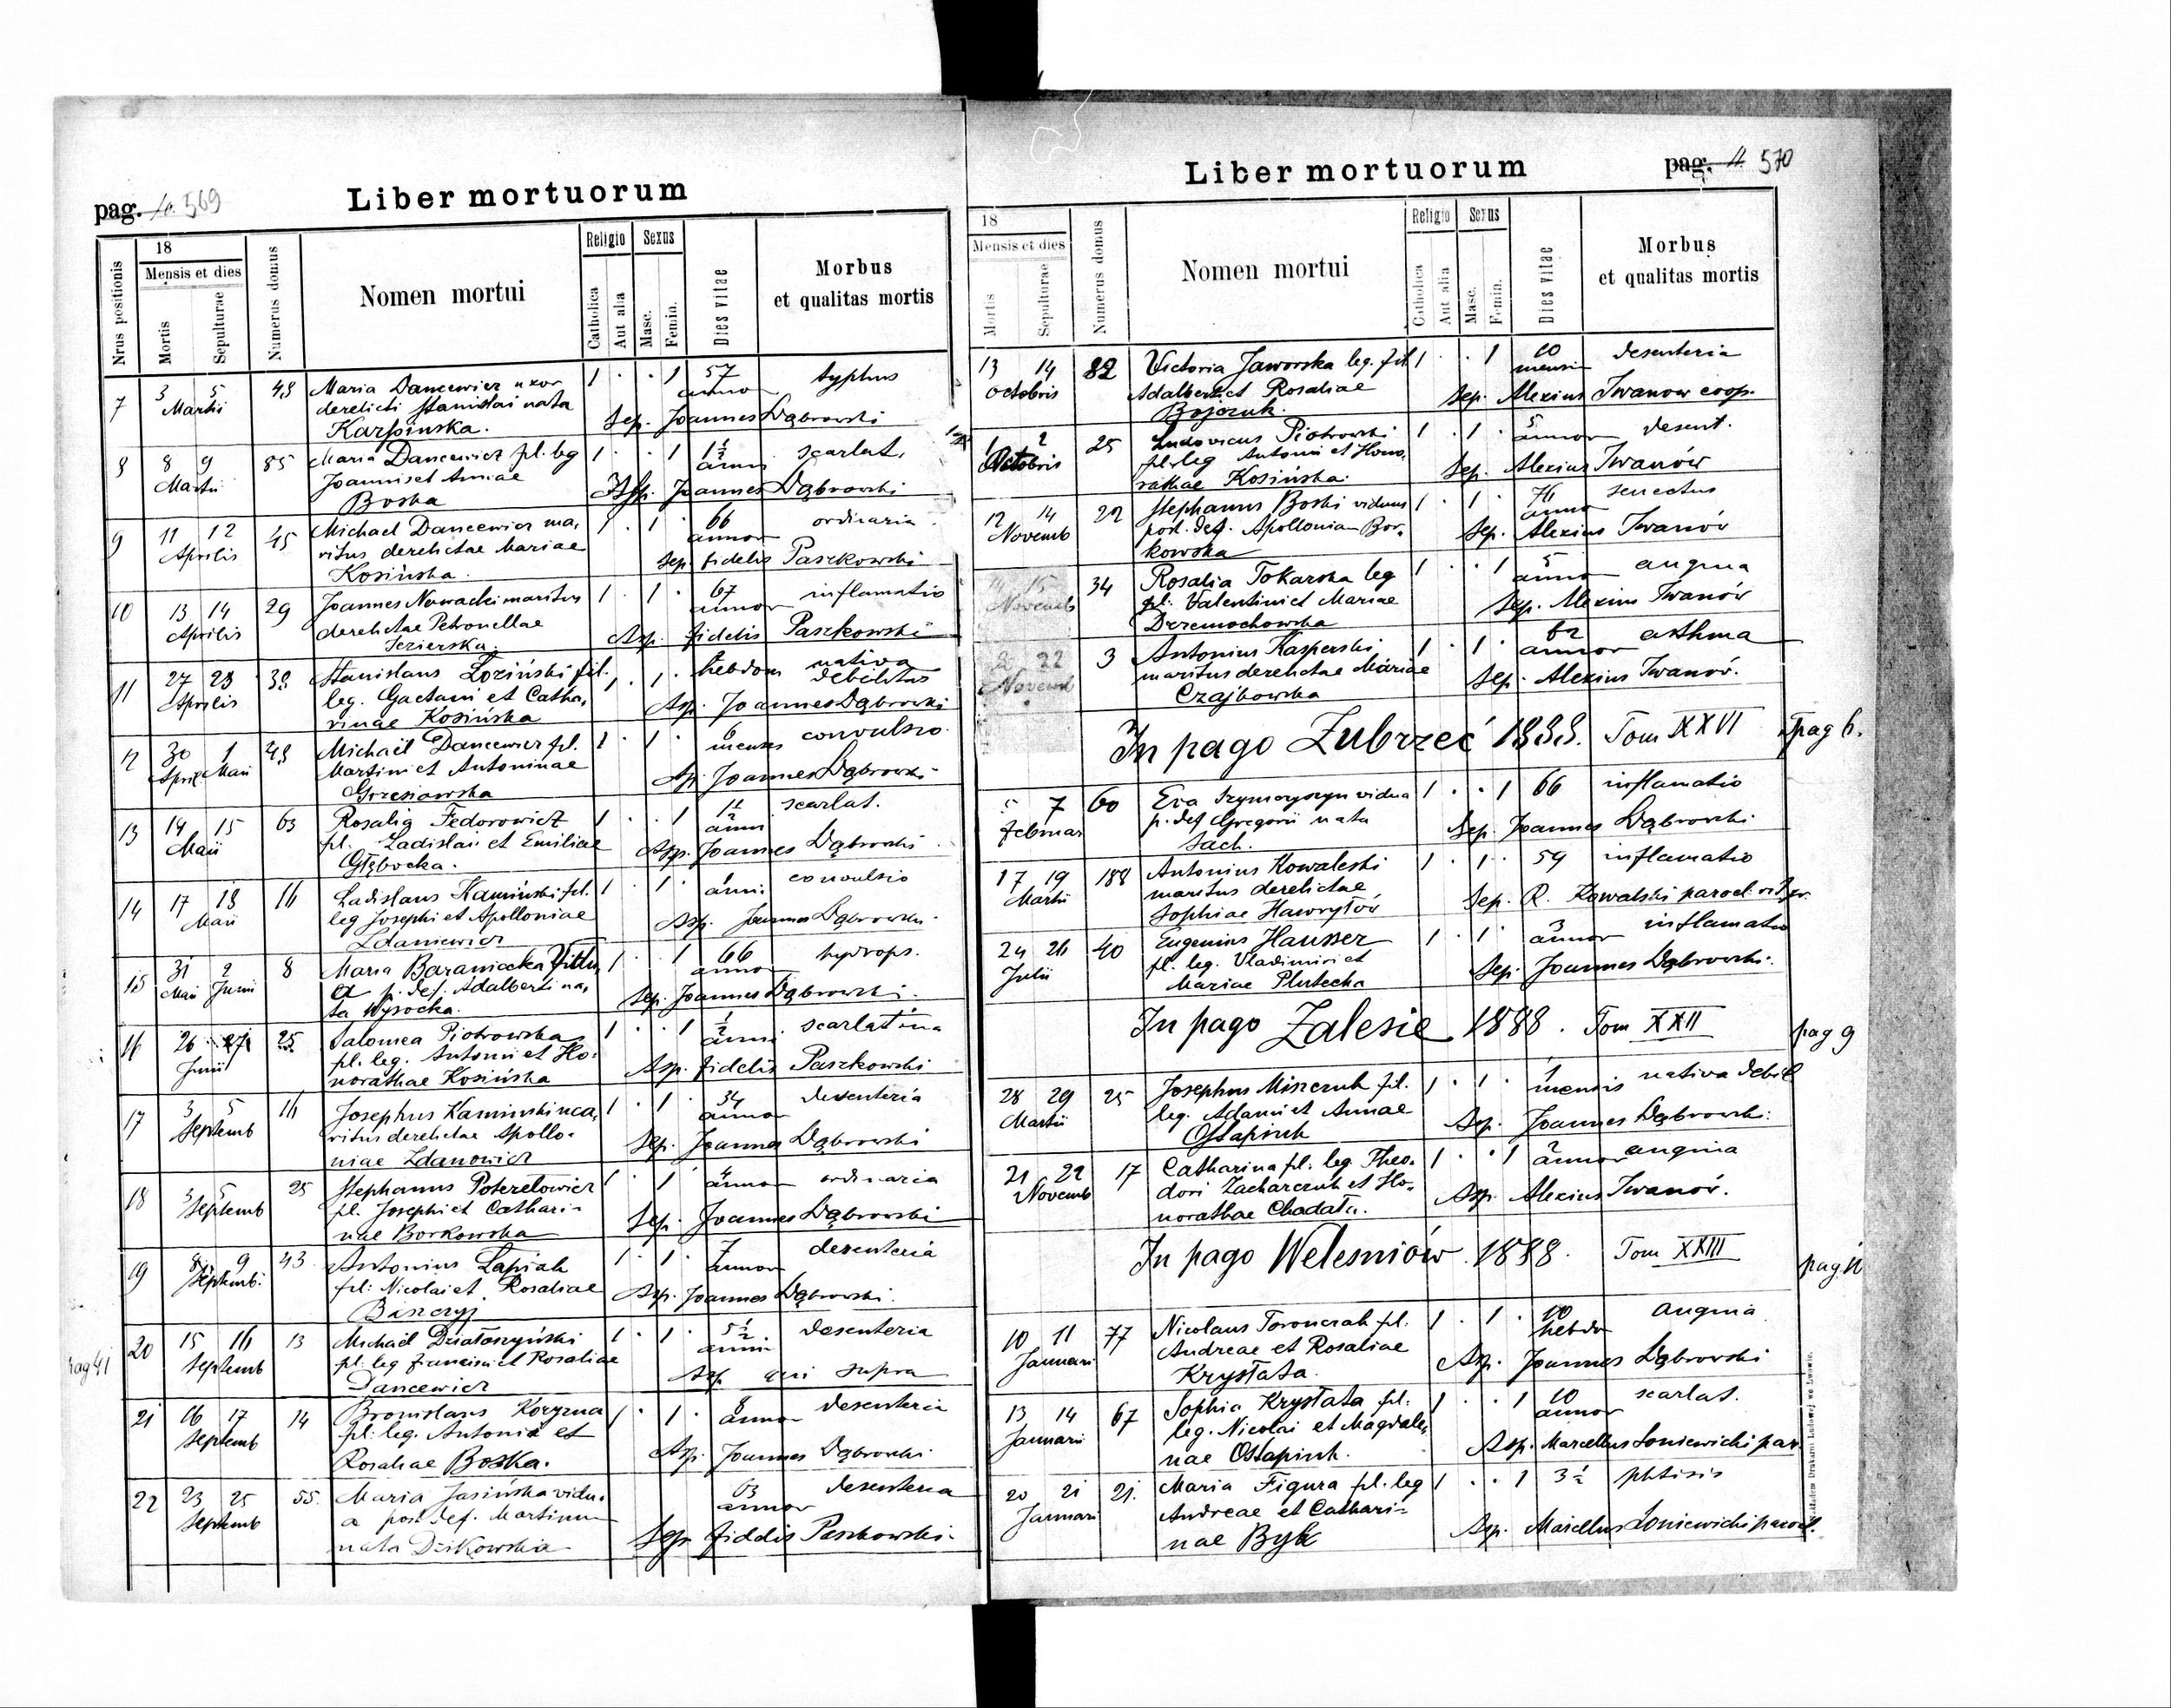 pag. 10. 569
Liber mortuorum
Nrus positionis
18
Mensis et dies
Mortis
Sepulturae
Numerus domus
Nomen mortui
Religio
Catholica
Aut alia
Sexus
Masc.
Femin.
Dies vitae
Morbus
et qualitas mortis
7 3 5 48 Maria Dancewicz uxor 1 . . 1 57 typhus
Martii derelicti Stanislai nata anno
Karpinska. Sep. Joannes Dąbrowski
8 8 9 85 Maria Dancewicz fil. leg 1 . . 1 1½ scarlat.
Martii Joannis et Anniae anni
Boska Joannes Dąbrowski
9 11 12 45 Michael Dancewicz ma, 1 . 1 . 66 ordinaria
Aprilis ritus derelictae Mariae annor
Kosińska. Sep. fidelis Paszkowski
10 13 14 29 Joannes Nowacki maritus 1 . 1 . 67 inflamatio
Aprilis derelictae Petronellae annor
Jezierska. Asp. fidelis Paszkowski
11 27 28 38 Stanislaus Łoziński fil. 1 . 1 . hebdom nativa
Aprilis leg. Gaetani et Catha, debilitas
rinae Kosińska Asp. Joannes Dąbrowski
12 30 1 48 Michaël Dancewicz fil. 1 . 1 . 6 convulsio
April Maii Martini et Antoninae menses
Grzesiowska Asp. Joannes Dąbrowski
13 14 15 63 Rosalia Fedorowicz 1 . . 1 1½ scarlat.
Maii fil. Ladislai et Emiliae anni
Głębocka. Asp. Joannes Dąbrowski
14 17 18 16 Ladislaus Kamiński fil. 1 . 1 . 1 convulsio
Maii leg Josephi et Apolloniae anni
Zdaniewicz Asp. Joannes Dąbrowski
15 31 2 8 Maria Baraniecka 1 . . 1 66 hydrops.
Maii Junii p. def. Adalberti na, annor
ta Wysocka. Sep. Joannes Dąbrowski.
16 26 27 25 Salomea Piotrowska 1 . . 1 ½ scarlatina
Junii fil. leg. Antonii et Ho- anni
norathae Kosińska Asp. fidelis Paszkowski
17 3 5 16 Josephus Kaminski ma, 1 . 1 . 34 desenteria
Septemb ritus derelictae Apollo- annor
niae Zdanowicz Sep. Joannes Dąbrowski
18 3 5 25 Stephanus Poterelowicz 1 . 1 . 4 ordinaria
Septemb fil. Josephi et Cathari- annor
nae Borkowska Sep. Joannes Dąbrowski
19 8 9 43 Antonius Łapiak 1 . 1 . 7 desenteria
Septemb. fil: Nicolai et Rosaliae annor
Biszczyj Asp. Joannes Dąbrowski.
20 15 16 13 Michaël Działoszyński 1 . 1 . 5½ desenteria
pag 41 Septemb fil: leg Francisci et Rosaliae anni
Dancewicz Asp qui supra
21 16 17 14 Bronislaus Koryzna 1 . 1 . 8 desenteria
Septemb fil: leg. Antonii et annor
Rosaliae Boska. Asp. Joannes Dąbrowski
22 23 25 55. Maria Jasińska vidu- 63 desenteria
Septemb a post def. Martinum annor
nata Dzikowska Sep. fidelis Paszkowski.
Liber mortuorum
pag. 11. 570
18
Mensis et dies
Mortis
Sepulturae
Numerus domus
Nomen mortui
Religio
Catholica
Aut alia
Sexus
Masc.
Femin.
Dies vitae
Morbus
et qualitas mortis
13 14 82 Victoria Jaworska leg. fil 1 . . 1 10 desenteria
octobris Adalberti et Rosaliae mensi
Bojczuk. Sep. Alexius Iwanow coop.
1 2 25 Ludovicus Piotrowski 1 . 1 . 5 desent.
Octobris fil. leg Antonii et Hono, annor
rathae Kosińska. Sep. Alexius Iwanów
12 14 22 Stephanus Boski viduus 1 . 1 . 76 senectus
Novemb post. def. Apolloniam Bor- anno
kowska Sep. Alexius Iwanów
14 15 34 Rosalia Tokarska leg 1 . . 1 5 angina
Novemb fil: Valentini et Mariae anno
Drzemochowska Sep. Alexius Iwanów
22 3 Antonius Kasperski 1 . 1 . 62 asthma
Novemb maritus derelictae Mariae annor
Czajkowska Sep. Alexius Iwanów.
In pago Zubrzeć 1888. Tom XXVI pag 6.
5 7 60 Eva Szymczyszyn vidua 1 . . 1 66 inflamatio
Februar p. def Gregorii nata
Sach. Sep. Joannes Dąbrowski
17 19 188 Antonius Kowaleski 1 . 1 . 59 inflamatio
Martii maritus derelictae
Sophiae Hawryłów Sep. R. Kowalski paroch.
24 26 40 Eugenius Hausser 1 . 1 . 3 inflamatio
Julii fil. leg. Vladimiri et annor
Mariae Plutecka Sep. Joannes Dąbrowski.
In pago Zalesie 1888. Tom XXII pag 9
28 29 25 Josephus Miszczuk fil. 1 . 1 . 1 nativa debil
Martii leg. Adami et Annae mensis
Ostapiuk Asp. Joannes Dąbrowski.
21 22 17 Catharina fil. leg. Theo- 1 . . 1 2 angina
Novemb dori Zacharczuk et Ho- annor
norathae Chadatu. Asp. Alexius Iwanów.
In pago Welesniów 1888. Tom XXIII pag 11
10 11 77 Nicolaus Toronczak fil. 1 . 1 . 10 angina
Januari Andreae et Rosaliae hebdo
Krystata. Asp. Joannes Dąbrowski
13 14 67 Sophia Krystata fil. 1 . . 1 10 scarlat.
Januari leg. Nicolai et Magdale, annor
nae Ostapiuk. Asp. Marcellus Soniewicki par.
20 21 21. Maria Figura fil. leg 1 . . 1 3½ phtisis
Januari Andreae et Cathari-
nae Byk Asp. Marcellus Soniewicki paroch.
Nakładem Drukarni Ludowej we Lwowie.